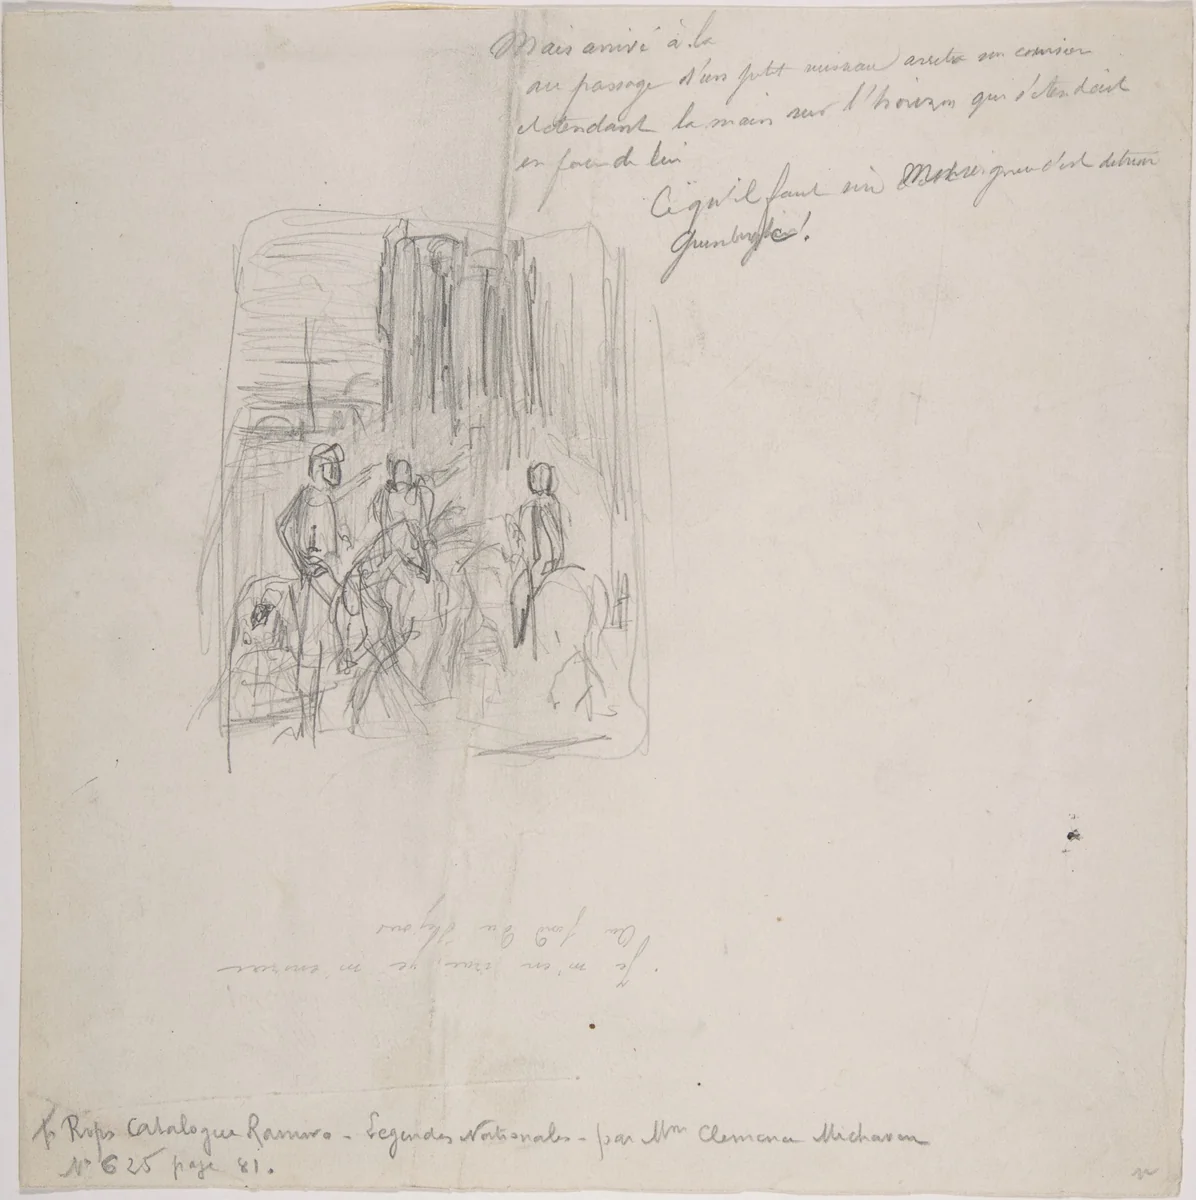 Mais arrivé à la
au passage d'un petit ruisseau arreta son coursier
et etendant la main sur l'horizon qui s'étendait
en face de lui
Ce qu'il faut Monseigneur c'est détruire
Je m'en irai, je m'enirai
Au fond du
Rops Catalogue Ramiro - Legendes Nationales - par Mme Clemence Michaven
N° 625 page 81.